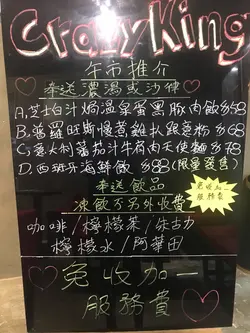 Crazy King
午市推介
奉送濃湯或沙律
A,芝士白汁焗溫泉蛋黑豚肉飯$58
B,普羅旺斯慢煮雞扒跟意粉$68
C,意大利蕃茄汁牛荷肉天使麵$78
D,西班牙海鮮飯$88(限量發售)
奉送飲品
凍飲不另外收費
免收加一
服務費
咖啡/檸檬茶/朱古力
檸檬水/阿華田
免收加一
服務費